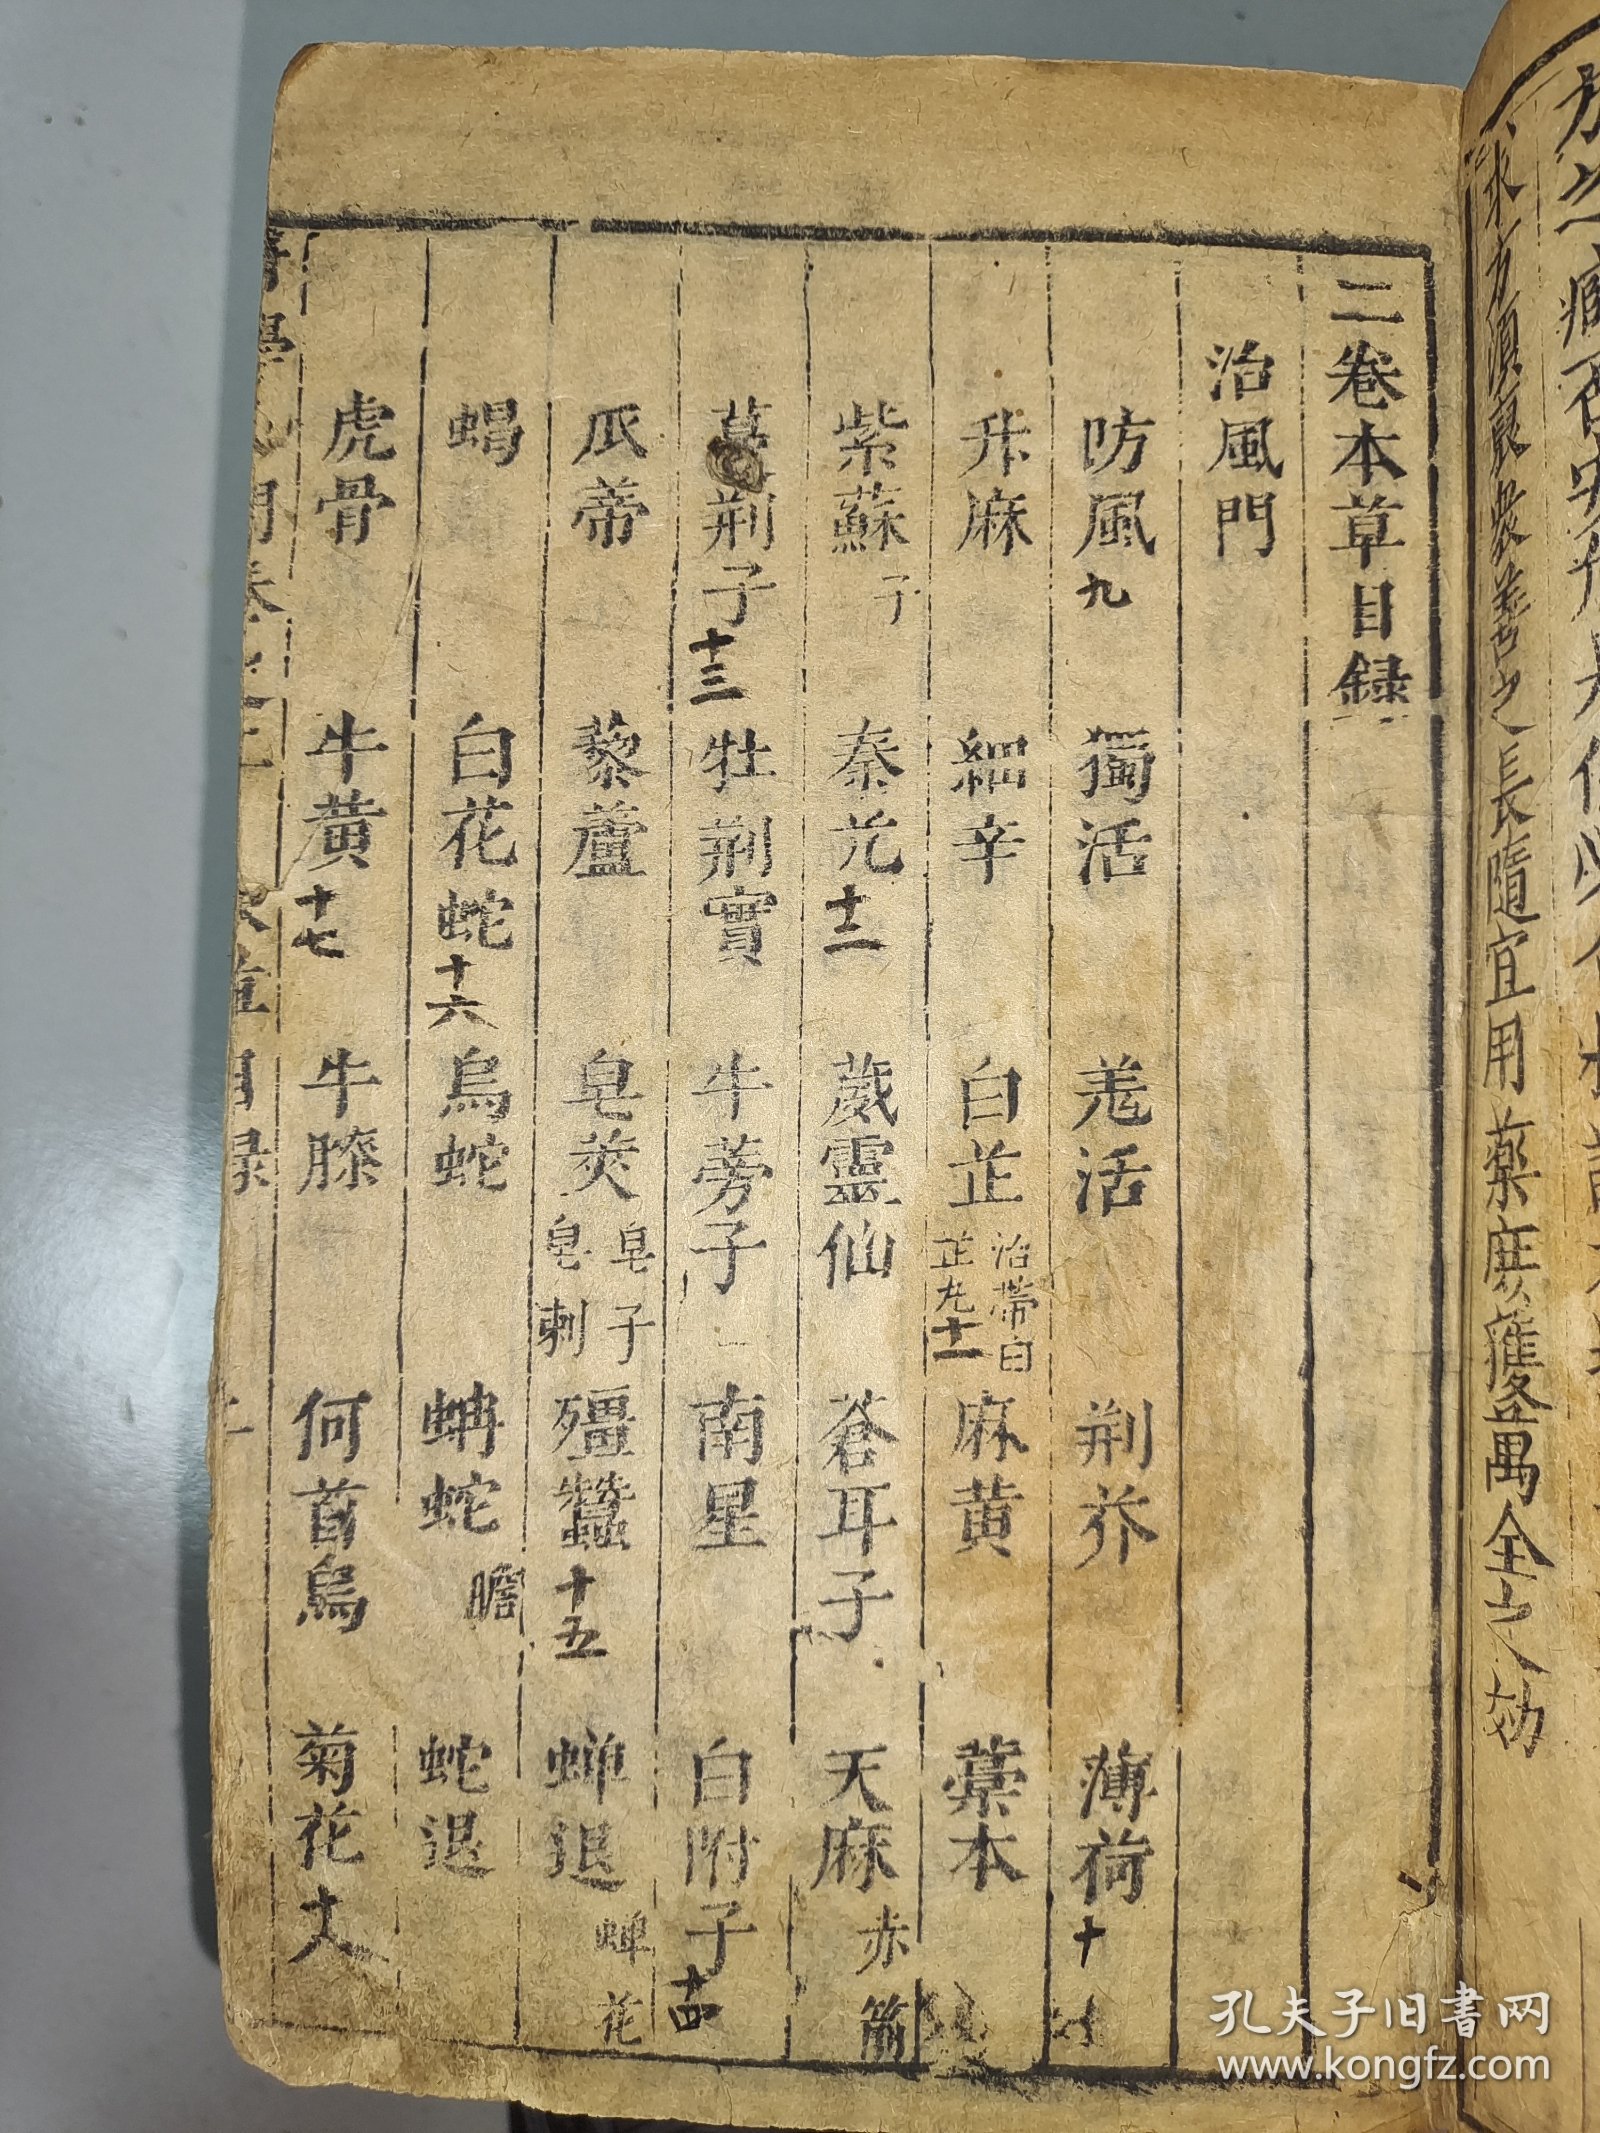 求方須裒裴善之長隨宜用藥庶獲萬全之効
二卷本草目録
治風門
防風九 獨活 羌活 荆芥 薄荷十
升麻 細辛 白芷治帶白芷丸十一 麻黄 藁本
紫蘇子 秦艽十二 葳靈仙 蒼耳子 天麻赤箭
蔓荆子十三 牡荆實 牛蒡子 南星 白附子十四
瓜蒂 藜蘆 皂莢皂子皂刺 殭蠶十五 蟬退蟬花
蝎 白花蛇十六 烏蛇 蚺蛇膽 蛇退
虎骨 牛黄十七 牛膝 何首烏 菊花
目録
孔夫子旧書网
www.kongfz.com